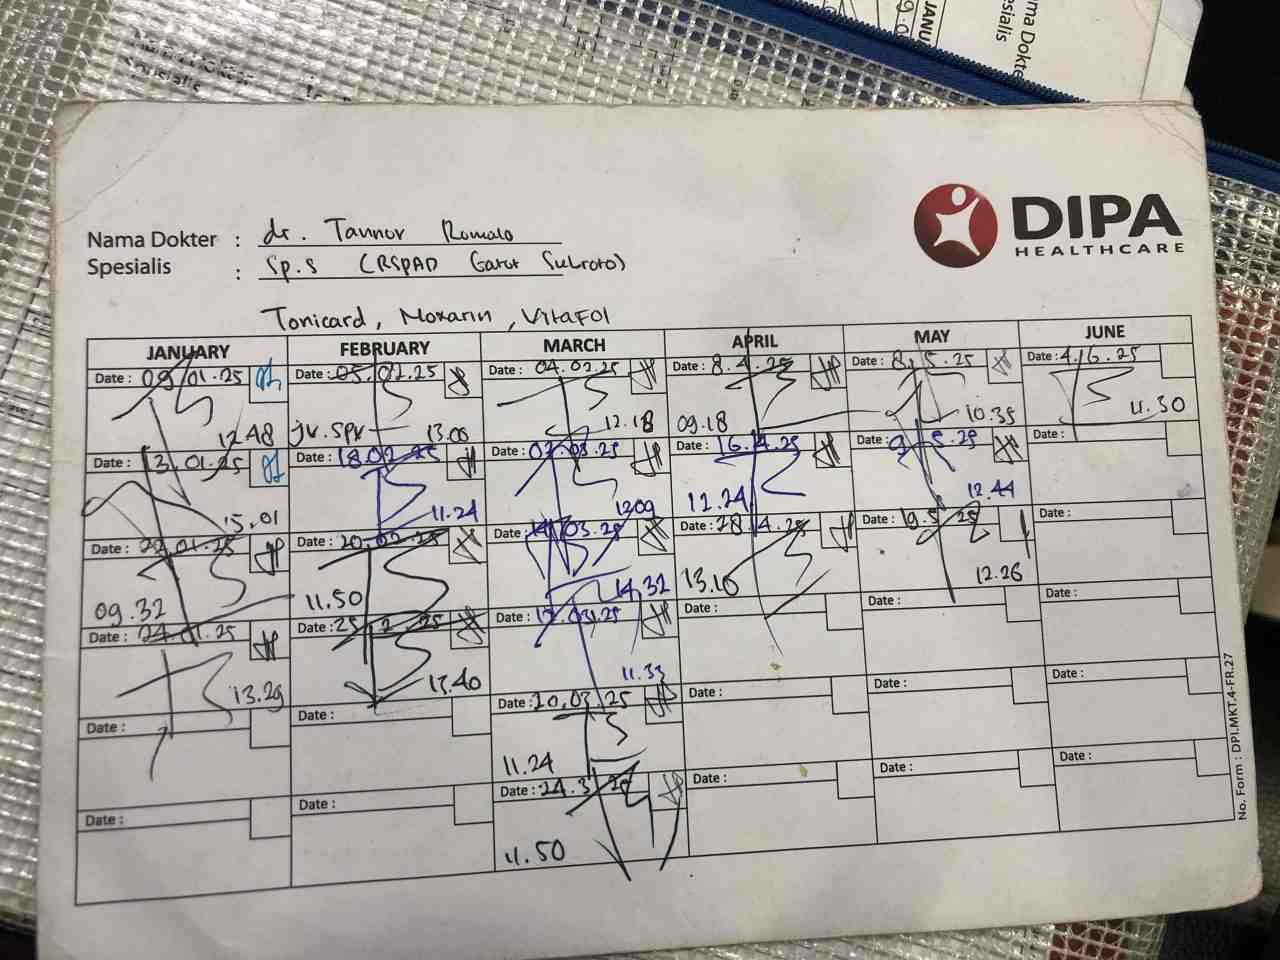 JANU
ma Dokte
sialis
DIPA
HEALTHCARE
Nama Dokter : dr. Tannor Romalo
Spesialis : Sp.S (RSPAD Gatot Subroto)
Tonicard, Moxarin, Vitafol
JANUARY FEBRUARY MARCH APRIL MAY JUNE
Date : 09/01.25 Date : 05.02.25 Date : 04.02.25 Date : 8.4.25 Date : 8/5.25 Date : 4.6.25
12.48 jv.spv 13.00 12.18 09.18 10.35 11.30
Date : 13.01.25 Date : 18.02.25 Date : 07.03.25 Date : 16.4.25 Date : 9.5.25 Date :
15.01 11.24 1209 12.24 12.44
Date : 22.01.25 Date : 20.02.25 Date : 14.03.25 Date : 28.4.25 Date : 19.5 25 Date :
09.32 11.50 14.32 13.10 12.26
Date : 24.01.25 Date : 25.2.25 Date : 17.03.25 Date : Date : Date :
13.29 13.40 11.33
Date : Date : Date : 20.03.25 Date : Date : Date :
11.24
Date : Date : Date : 24.3.25 Date : Date : Date :
11.50
No. Form : DPI.MKT.4-FR.27